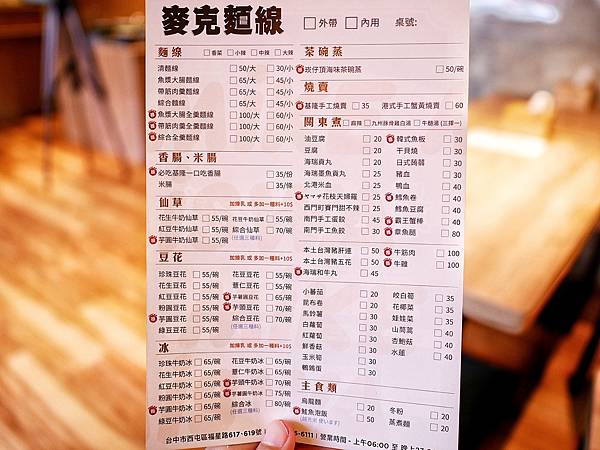 麥克麵線 □外帶 □內用 桌號:
麵線 □香菜 □小辣 □中辣 □大辣
清麵線 □50/大 □30/小
魚漿大腸麵線 □65/大 □45/小
帶筋肉羹麵線 □65/大 □45/小
綜合麵線 □65/大 □45/小
魚漿大腸全羹麵線 □100/大 □60/小
帶筋肉羹全羹麵線 □100/大 □60/小
綜合全羹麵線 □100/大 □60/小
香腸、米腸
必吃基隆一口吃香腸 □35/份
米腸 □35/條
仙草 加煉乳 或 多加一種料+10$
花生牛奶仙草 □55/碗 花豆牛奶仙草 □55/碗
紅豆牛奶仙草 □55/碗 綜合仙草 □70/碗
芋圓牛奶仙草 □55/碗 (任選三種料)
豆花 加煉乳 或 多加一種料+10$
珍珠豆花 □55/碗 花豆豆花 □55/碗
花生豆花 □55/碗 薏仁豆花 □55/碗
紅豆豆花 □55/碗 芋薯圓豆花 □65/碗
粉圓豆花 □55/碗 芋頭豆花 □70/碗
芋圓豆花 □55/碗 綜合豆花 □70/碗
綠豆豆花 □55/碗 (任選三種料)
冰 加煉乳 或 多加一種料+10$
珍珠牛奶冰 □65/碗 花豆牛奶冰 □65/碗
花生牛奶冰 □65/碗 薏仁牛奶冰 □65/碗
紅豆牛奶冰 □65/碗 芋頭牛奶冰 □70/碗
粉圓牛奶冰 □65/碗 芋薯圓牛奶冰 □75/碗
芋圓牛奶冰 □65/碗 綜合冰 □80/碗
綠豆牛奶冰 □65/碗 (任選三種料)
茶碗蒸
崁仔頂海味茶碗蒸 □50/碗
燒賣
基隆手工燒賣 □35 港式手工蟹黃燒賣 □60
關東煮 □麻辣 □九州豚骨雞白湯 □牛髓湯 (三擇一)
油豆腐 □20 韓式魚板 □30
豆腐 □20 干貝燒 □30
海瑞貢丸 □20 日式蒟蒻 □30
海瑞墨魚貢丸 □25 豬血 □30
北港米血 □25 鴨血 □40
ヤマサ花枝天婦羅 □25 鱈魚卷 □40
西門町賽門甜不辣 □25 鱈魚豆腐 □40
南門手工蛋餃 □45 霸王蟹棒 □40
南門手工魚餃 □30 章魚腿 □80
本土台灣豬肝連 □50 牛筋肉 □100
本土台灣豬五花 □50 牛雜 □100
海瑞和牛丸 □45
小蕃茄 □20 皎白筍 □35
昆布卷 □20 花椰菜 □35
馬鈴薯 □30 娃娃菜 □35
白蘿蔔 □30 山茼蒿 □40
紅蘿蔔 □30 杏鮑菇 □40
鮮香菇 □30 水蓮 □40
玉米筍 □30
鵪鶉蛋 □30
主食類
烏龍麵 □20 冬粉 □20
鱈魚泡飯 □50 蒸煮麵 □20
台中市西屯區福星路617-619號 5-6111 | 營業時間 - 上午06:00 至 晚上